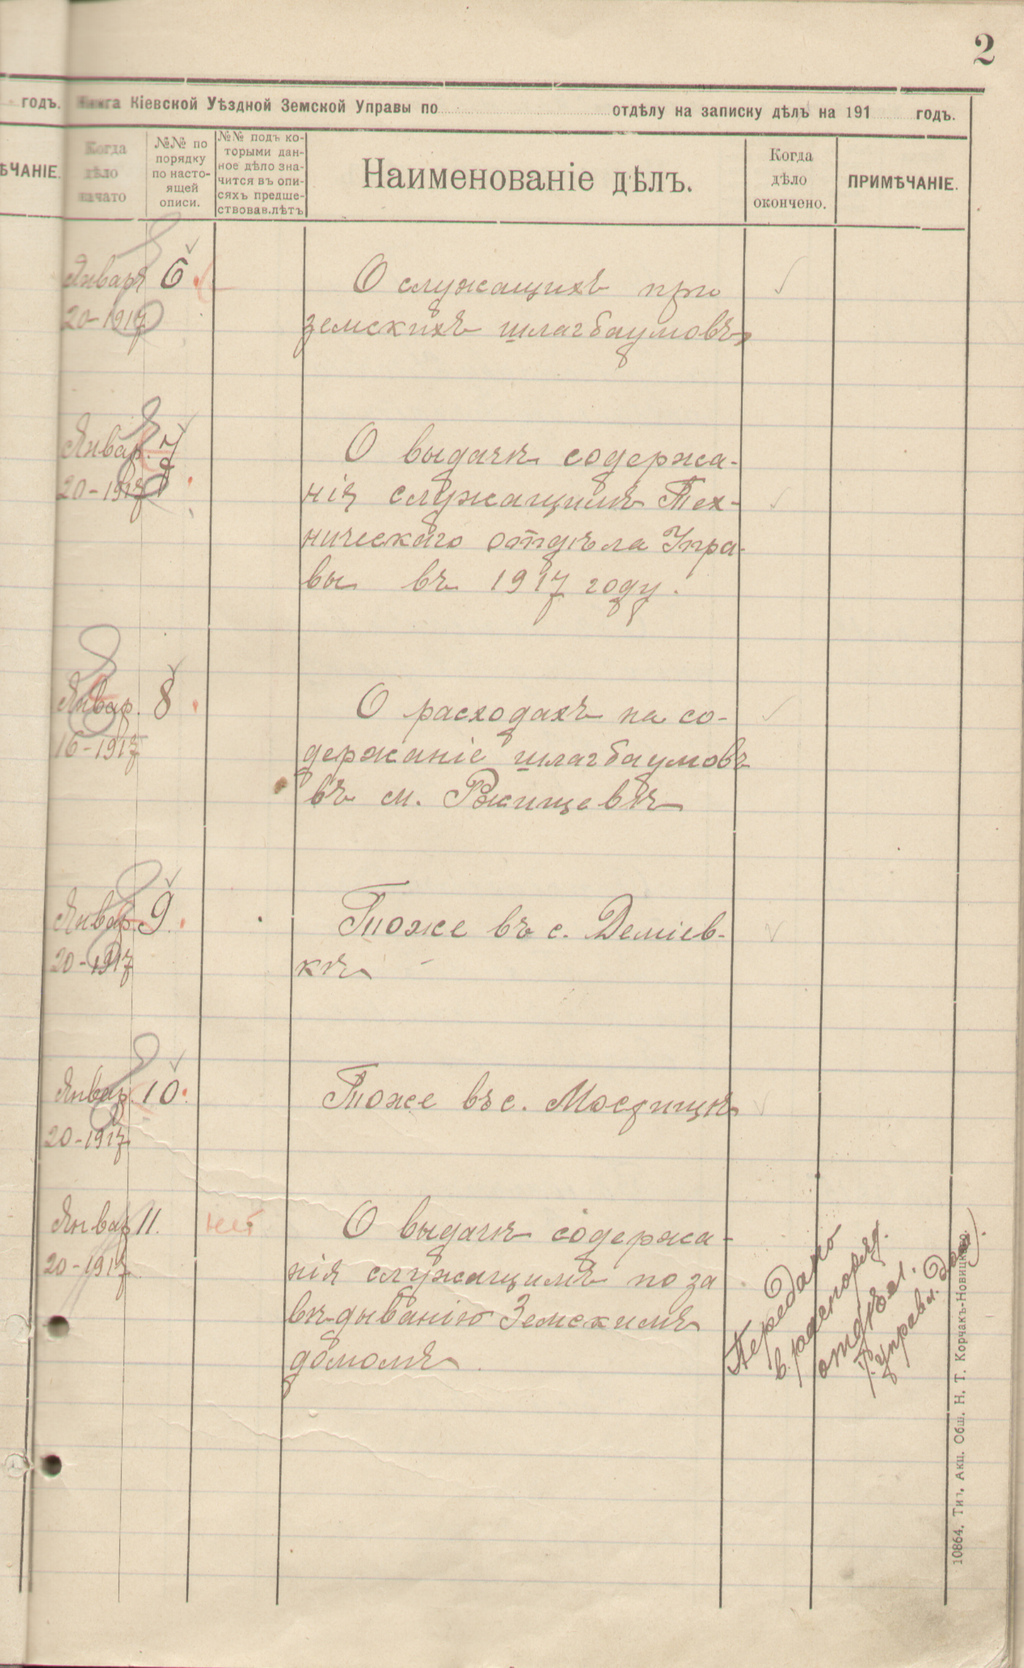 2
годъ. Книга Кіевской Уѣздной Земской Управы по отдѣлу на записку дѣлъ на 191 годъ.
ѢЧАНІЕ.
Когда
дѣло
начато
№№ по
порядку
по насто-
ящей
описи.
№№ подъ ко-
торыми дан-
ное дѣло зна-
чится въ опи-
сяхъ предше-
ствовав.лѣтъ
Наименованіе дѣлъ.
Когда
дѣло
окончено.
ПРИМѢЧАНІЕ.
Января 6 О служащихъ при
20-1917 земскихъ шлагбаумовъ
Январ. 7 О выдачѣ содержа-
20-1917 нія служащимъ Тех-
ническаго отдѣла Упра-
вы въ 1917 году.
Январ. 8 О расходахъ на со-
16-1917 держаніе шлагбаумовъ
въ м. Ржищевѣ
Январ. 9. Тоже въ с. Деміев-
20-1917 кѣ
Январ. 10. Тоже въ с. Мосрищѣ
20-1917
Январ 11. нет О выдачѣ содержа-
20-1917 нія служащимъ по за
вѣдыванію Земскимъ
домомъ.
Передано
в распоряд.
отдѣл.
10864. Тип. Акц. Общ. Н. Т. Корчакъ-Новицкаго.